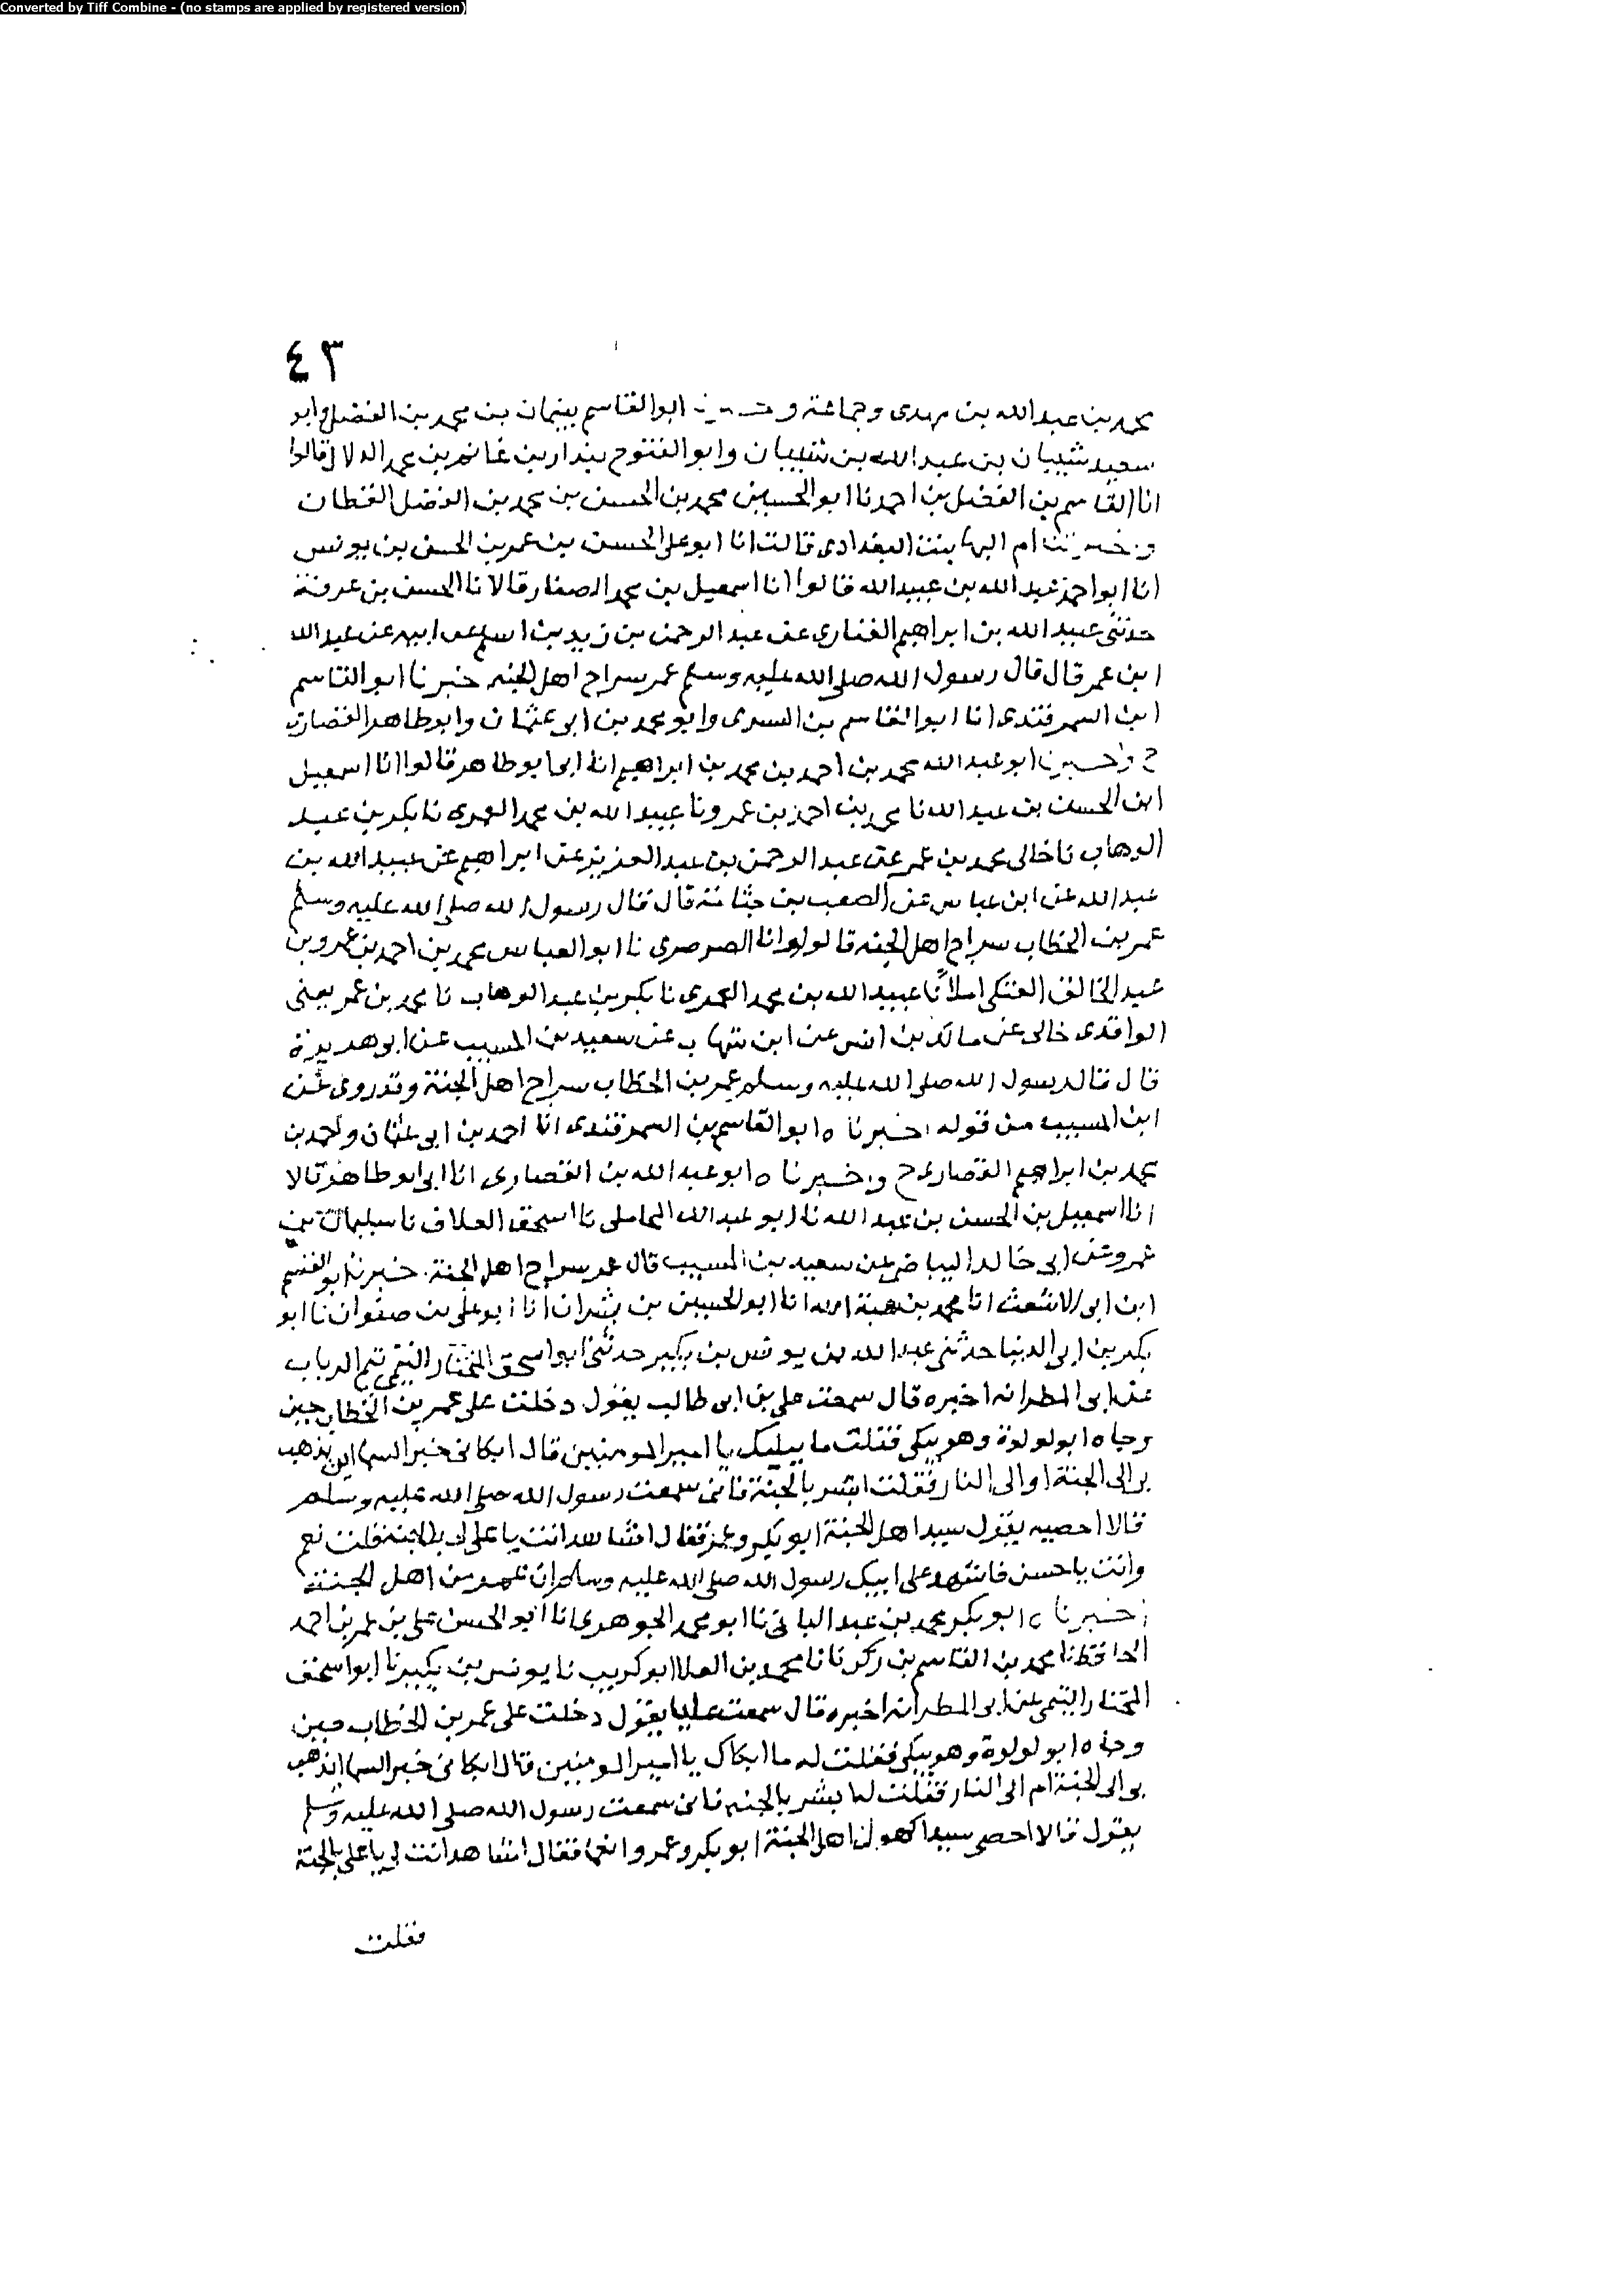 Converted by Tiff Combine - (no stamps are applied by registered version)
٤٣
محمد بن عبد الله بن مهدى وجماعة و ابو القاسم بن محمد بن الفضل وابو
سعيد شيبان بن عبد الله بن شيبان وابو الفتوح بندار بن غانم بن محمد الدلال قالوا
انا القاسم بن الفضل بن احمد نا ابو الحسين محمد بن الحسين بن محمد بن الفضل القطان
واخبرتنا ام البها بنت البغدادى قالت انا ابو على الحسن بن عمر بن الحسن بن يونس
انا ابو احمد عبد الله بن عبيد الله قالوا انا اسمعيل بن محمد الصفار قالا نا الحسن بن عرفة
حدثنى عبد الله بن ابراهيم الغفارى عن عبد الرحمن بن زيد بن اسلم عن ابيه عن عبد الله
ابن عمر قال قال رسول الله صلى الله عليه وسلم عمر سراج اهل الجنه خبرنا ابو القاسم
ابن السمرقندى انا ابو القاسم بن البسرى وابو محمد بن ابى عثمان وابو طاهر القصارى
ح واخبرنا ابو عبد الله محمد بن احمد بن محمد بن ابراهيم انا ابى ابو طاهر قالوا انا اسمعيل
ابن الحسن بن عبد الله نا محمد بن احمد بن عمرو نا عبيد الله بن محمد العمرى نا بكر بن عبد
الوهاب نا خالى محمد بن عمر عن عبد الرحمن بن عبد العزيز عن ابراهيم عن عبيد الله بن
عبد الله عن ابن عباس عن الصعب بن جثامة قال قال رسول الله صلى الله عليه وسلم
عمر بن الخطاب سراج اهل الجنه قالوا وانا الصرصرى نا ابو العباس محمد بن احمد بن عمرو بن
عبد الخالق العتكى املأ نا عبيد الله بن محمد العمرى نا بكر بن عبد الوهاب نا محمد بن عمر يعنى
الواقدى خالى عن مالك بن انس عن ابن شهاب عن سعيد بن المسيب عن ابو هريرة
قال قال رسول الله صلى الله عليه وسلم عمر بن الخطاب سراج اهل الجنة وقد روى عن
ابن المسيب من قوله اخبرناه ابو القاسم بن السمرقندى انا احمد بن ابى عثمان واحمد بن
محمد بن ابراهيم القصارى ح واخبرناه ابو عبد الله بن القصارى انا ابى ابو طاهر قالا
انا اسمعيل بن الحسن بن عبد الله نا ابو عبد الله المحاملى نا اسحق العلاف نا سليمان بن
عمرو عن ابى خالد البياضى عن سعيد بن المسيب قال عمر سراج اهل الجنة. خبرنا ابو القسم
ابن ابى الاشعث انا محمد بن هبة الله انا ابو الحسين بن بشران انا ابو على بن صفوان نا ابو
بكر بن ابى الدنيا حدثنى عبد الله بن يونس بن بكير حدثنى ابو اسحق المختار التيمى تيم الرباب
عن ابى المطر انه اخبره قال سمعت على بن ابى طالب يقول دخلت على عمر بن الخطاب حين
وجاه ابو لولوة وهو يبكى فقلت ما يبكيك يا امير المومنين قال ابكانى خبر السما اين يذهب
بى الى الجنة او الى النار فقلت ابشر بالجنة فانى سمعت رسول الله صلى الله عليه وسلم
قالا احصيه يقول سيدا اهل الجنة ابو بكر وعمر فقال اشاهد انت يا على لى بالجنة قلت نعم
وانت يا حسن فاشهد على ابيك رسول الله صلى الله عليه وسلم ان عمر من اهل الجنة
اخبرناه ابو بكر محمد بن عبد الباقى نا ابو محمد الجوهرى انا ابو الحسن على بن عمر بن احمد
الحافظ نا محمد بن القاسم بن زكريا نا محمد بن العلا ابو كريب نا يونس بن بكير نا ابو اسحق
المختار التيمى عن ابى المطر انه اخبره قال سمعت عليا يقول دخلت على عمر بن الخطاب حين
وجاه ابو لولوة وهو يبكى فقلت له ما ابكاك يا امير المومنين قال ابكانى خبر السما ايذهب
بى الى الجنة ام الى النار فقلت له ابشر بالجنه فانى سمعت رسول الله صلى الله عليه وسلم
يقول قالا احصى سيدا كهول اهل الجنة ابو بكر وعمر وانعما فقال اشاهد انت لى يا على بالجنة
فقلت